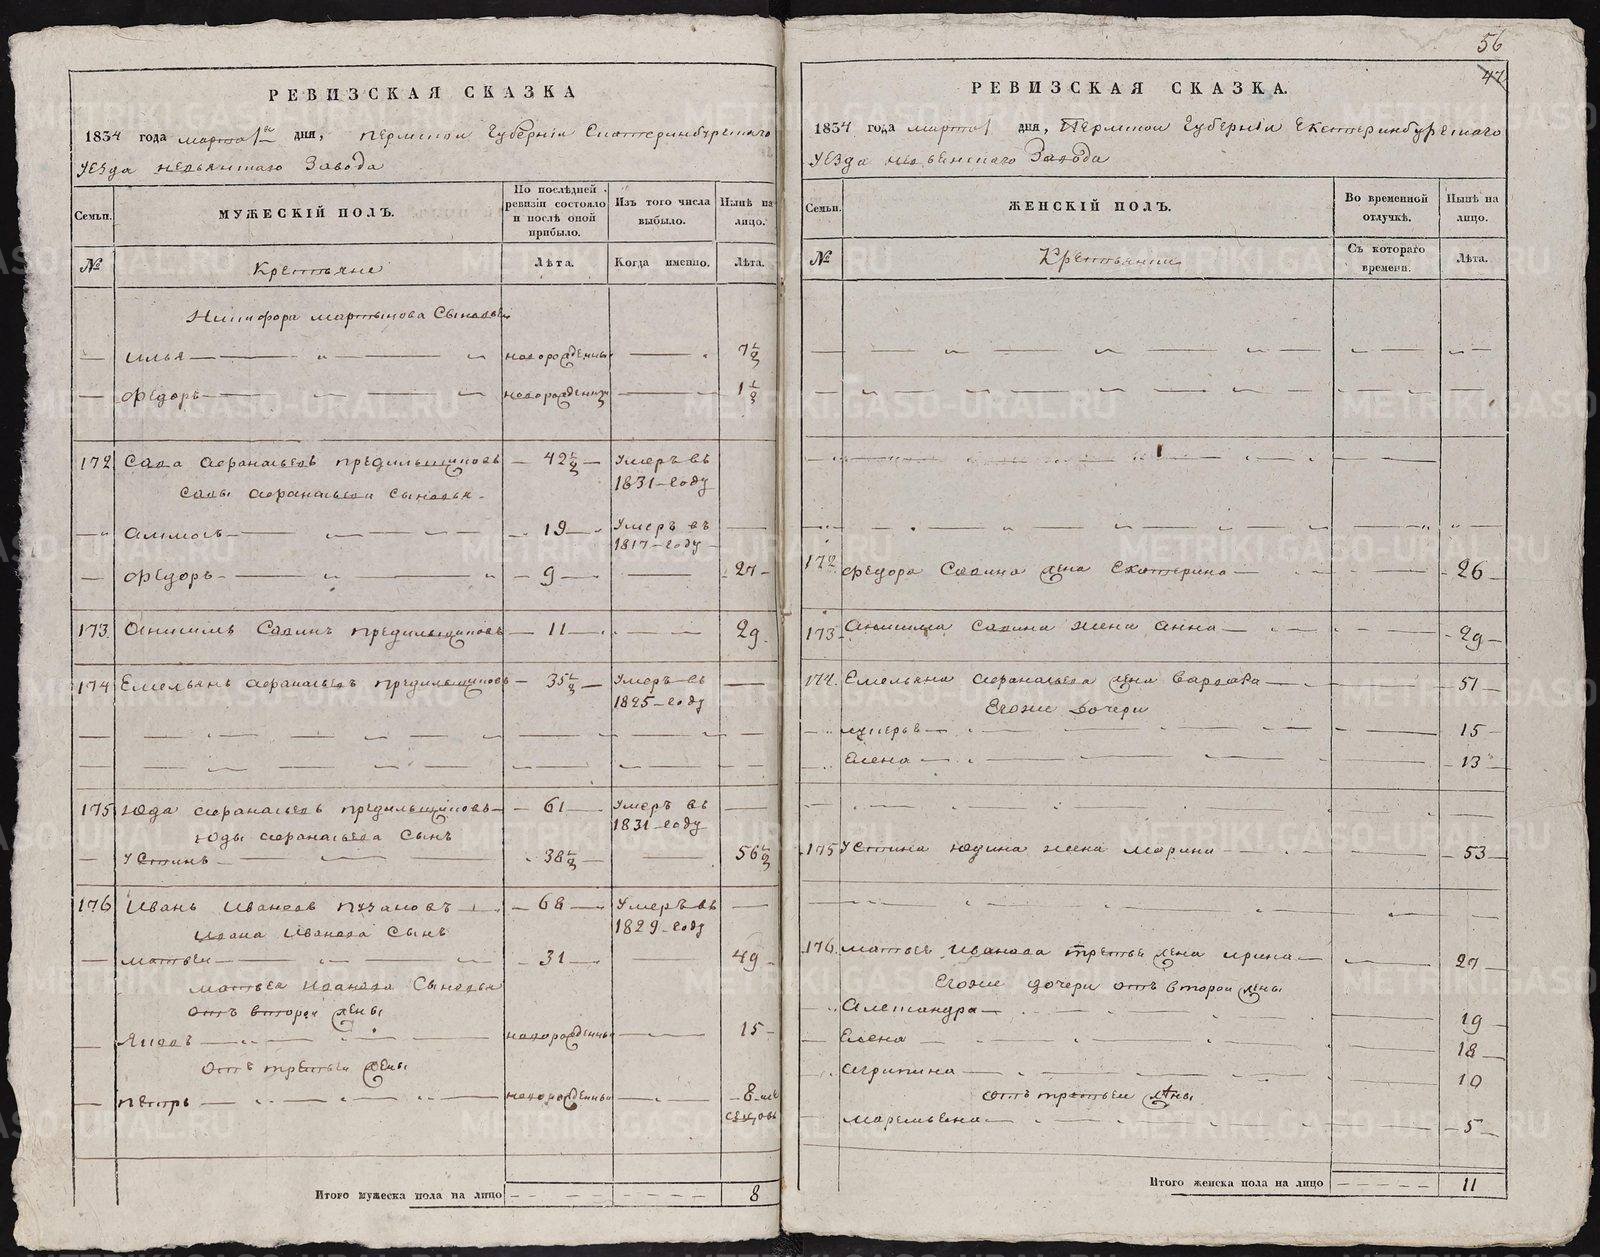 РЕВИЗСКАЯ СКАЗКА
1834 года марта 1 дня, Пермской Губернии Екатеринбургского
уезда невьянского Завода
Семьи.
МУЖЕСКІЙ ПОЛЪ.
По послѣдней ревизіи состояло и послѣ оной прибыло.
Изъ того числа выбыло.
Нынѣ на лицо.
№
Крестьяне
Лѣта.
Когда именно.
Лѣта.
Никифора мартынова Сыновья
— илья — новорожденны — 7½
— Федоръ — новорожденны — 1½
172 Сава афанасьевъ предильщиковъ — 42½ — Умеръ въ 1831 году
Савы афанасьева Сыновья
— — 19 — Умеръ въ 1817 году —
— Федоръ — 9 — — 27
173. Анисимъ Савинъ предильщиковъ — 11 — — 29
174 Емельянъ афанасьевъ предильщиковъ — 35½ — Умеръ въ 1825 году —
175 Юда афанасьевъ предильщиковъ — 61 — Умеръ въ 1831 году —
Юды афанасьева Сынъ
— Устинъ — 38½ — — 56½
176 Иванъ Ивановъ — 68 — Умеръ въ 1829 году —
Ивана Иванова Сынъ
— матвеи — 31 — — 49
матвеа Иванова Сыновья
отъ второи жены
— Яковъ — новорожденны — 15
отъ третьеи жены
— петръ — новорожденны — 8
Итого мужеска пола на лицо
8
56
47
РЕВИЗСКАЯ СКАЗКА.
1834 года марта 1 дня, Пермскои Губерніи Екатеринбургского
уезда невьенского Завода
Семьи.
ЖЕНСКІЙ ПОЛЪ.
Во временной отлучкѣ.
Нынѣ на лицо.
№
Крестьянки
Съ котораго времени.
Лѣта.
172 Федора Савина жена Екатерина — 26
173 Анисима Савина жена анна — 29
174. Емельяна афанасьева жена варвара — 51
Егоже дочери
— 15
Елена — 13
175 Устина Юдина жена марина — 53
176 матвея Иванова третья жена ирина — 27
Егоже дочери отъ второи жены
Александра — 19
Елена — 18
агрипина — 10
отъ третьеи жены
маремьяна — 5
Итого женска пола на лицо
11
METRIKI.GASO-URAL.RU